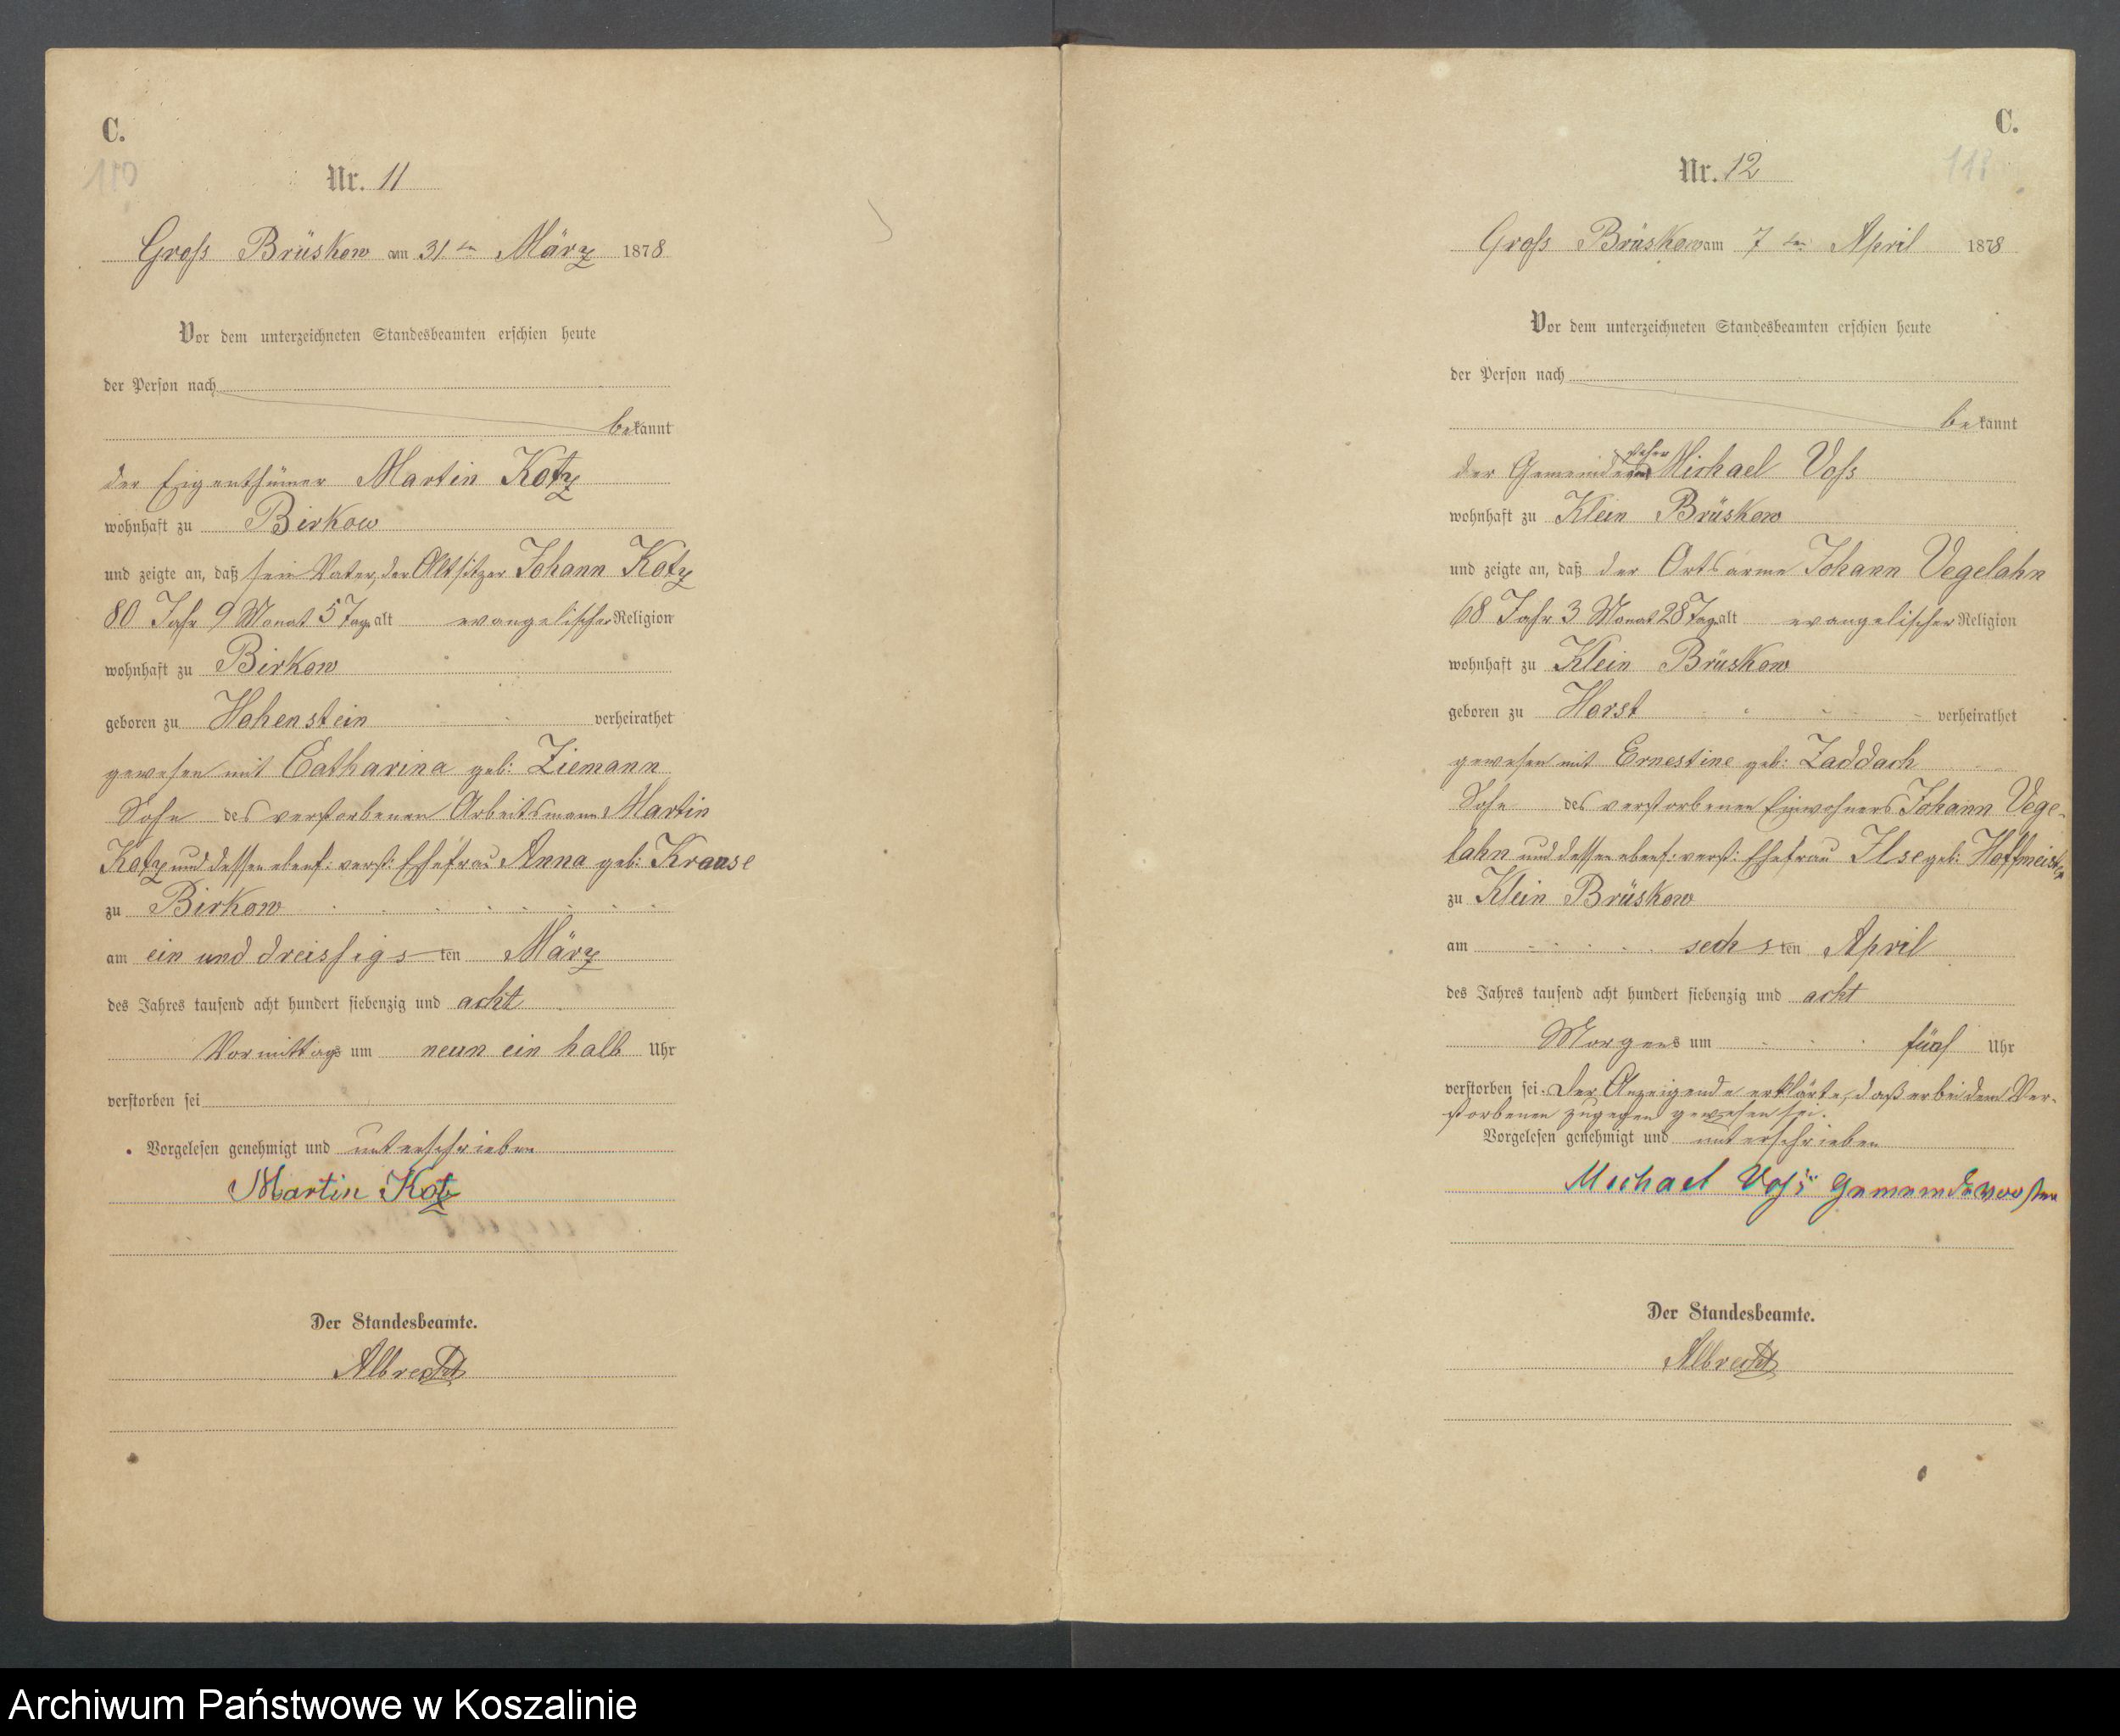 C.
110
Nr. 11
Gross Brüskow am 31 ten März 1878
Vor dem unterzeichneten Standesbeamten erschien heute
der Person nach
bekannt
der Eigenthümer Martin Kotz
wohnhaft zu Birkow
und zeigte an, daß sein Vater, der Altsitzer Johann Kotz
80 Jahr 9 Monat 5 Tage alt evangelischer Religion
wohnhaft zu Birkow
geboren zu Hohenstein verheirathet
gewesen mit Catharina geb: Ziemann
Sohn des verstorbenen Arbeitsmann Martin
Kotz und dessen ebenf: verst: Ehefrau Anna geb: Krause
zu Birkow
am ein und dreissigsten März
des Jahres tausend acht hundert siebenzig und acht
Vormittags um neun ein halb Uhr
verstorben sei
Vorgelesen genehmigt und unterschrieben
Martin Kotz
Der Standesbeamte.
Albrecht
C.
Nr. 12
Gross Brüskow am 7 ten April 1878
Vor dem unterzeichneten Standesbeamten erschien heute
der Person nach
bekannt
der Gemeindevorsteher Michael Voss
wohnhaft zu Klein Brüskow
und zeigte an, daß der Ortsarme Johann Vegelahn
68 Jahr 3 Monat 28 Tage alt evangelischer Religion
wohnhaft zu Klein Brüskow
geboren zu Horst verheirathet
gewesen mit Ernestine geb: Zaddach
Sohn des verstorbenen Einwohners Johann Vege-
lahn und dessen ebenf: verst: Ehefrau Ilse geb: Hoffmeister
zu Klein Brüskow
am sechsten April
des Jahres tausend acht hundert siebenzig und acht
Morgens um fünf Uhr
verstorben sei. Der Anzeigende erklärte, daß er bei dem Ver-
storbenen zugegen gewesen sei.
Vorgelesen genehmigt und unterschrieben
Michael Voß
Der Standesbeamte.
Albrecht
Archiwum Państwowe w Koszalinie